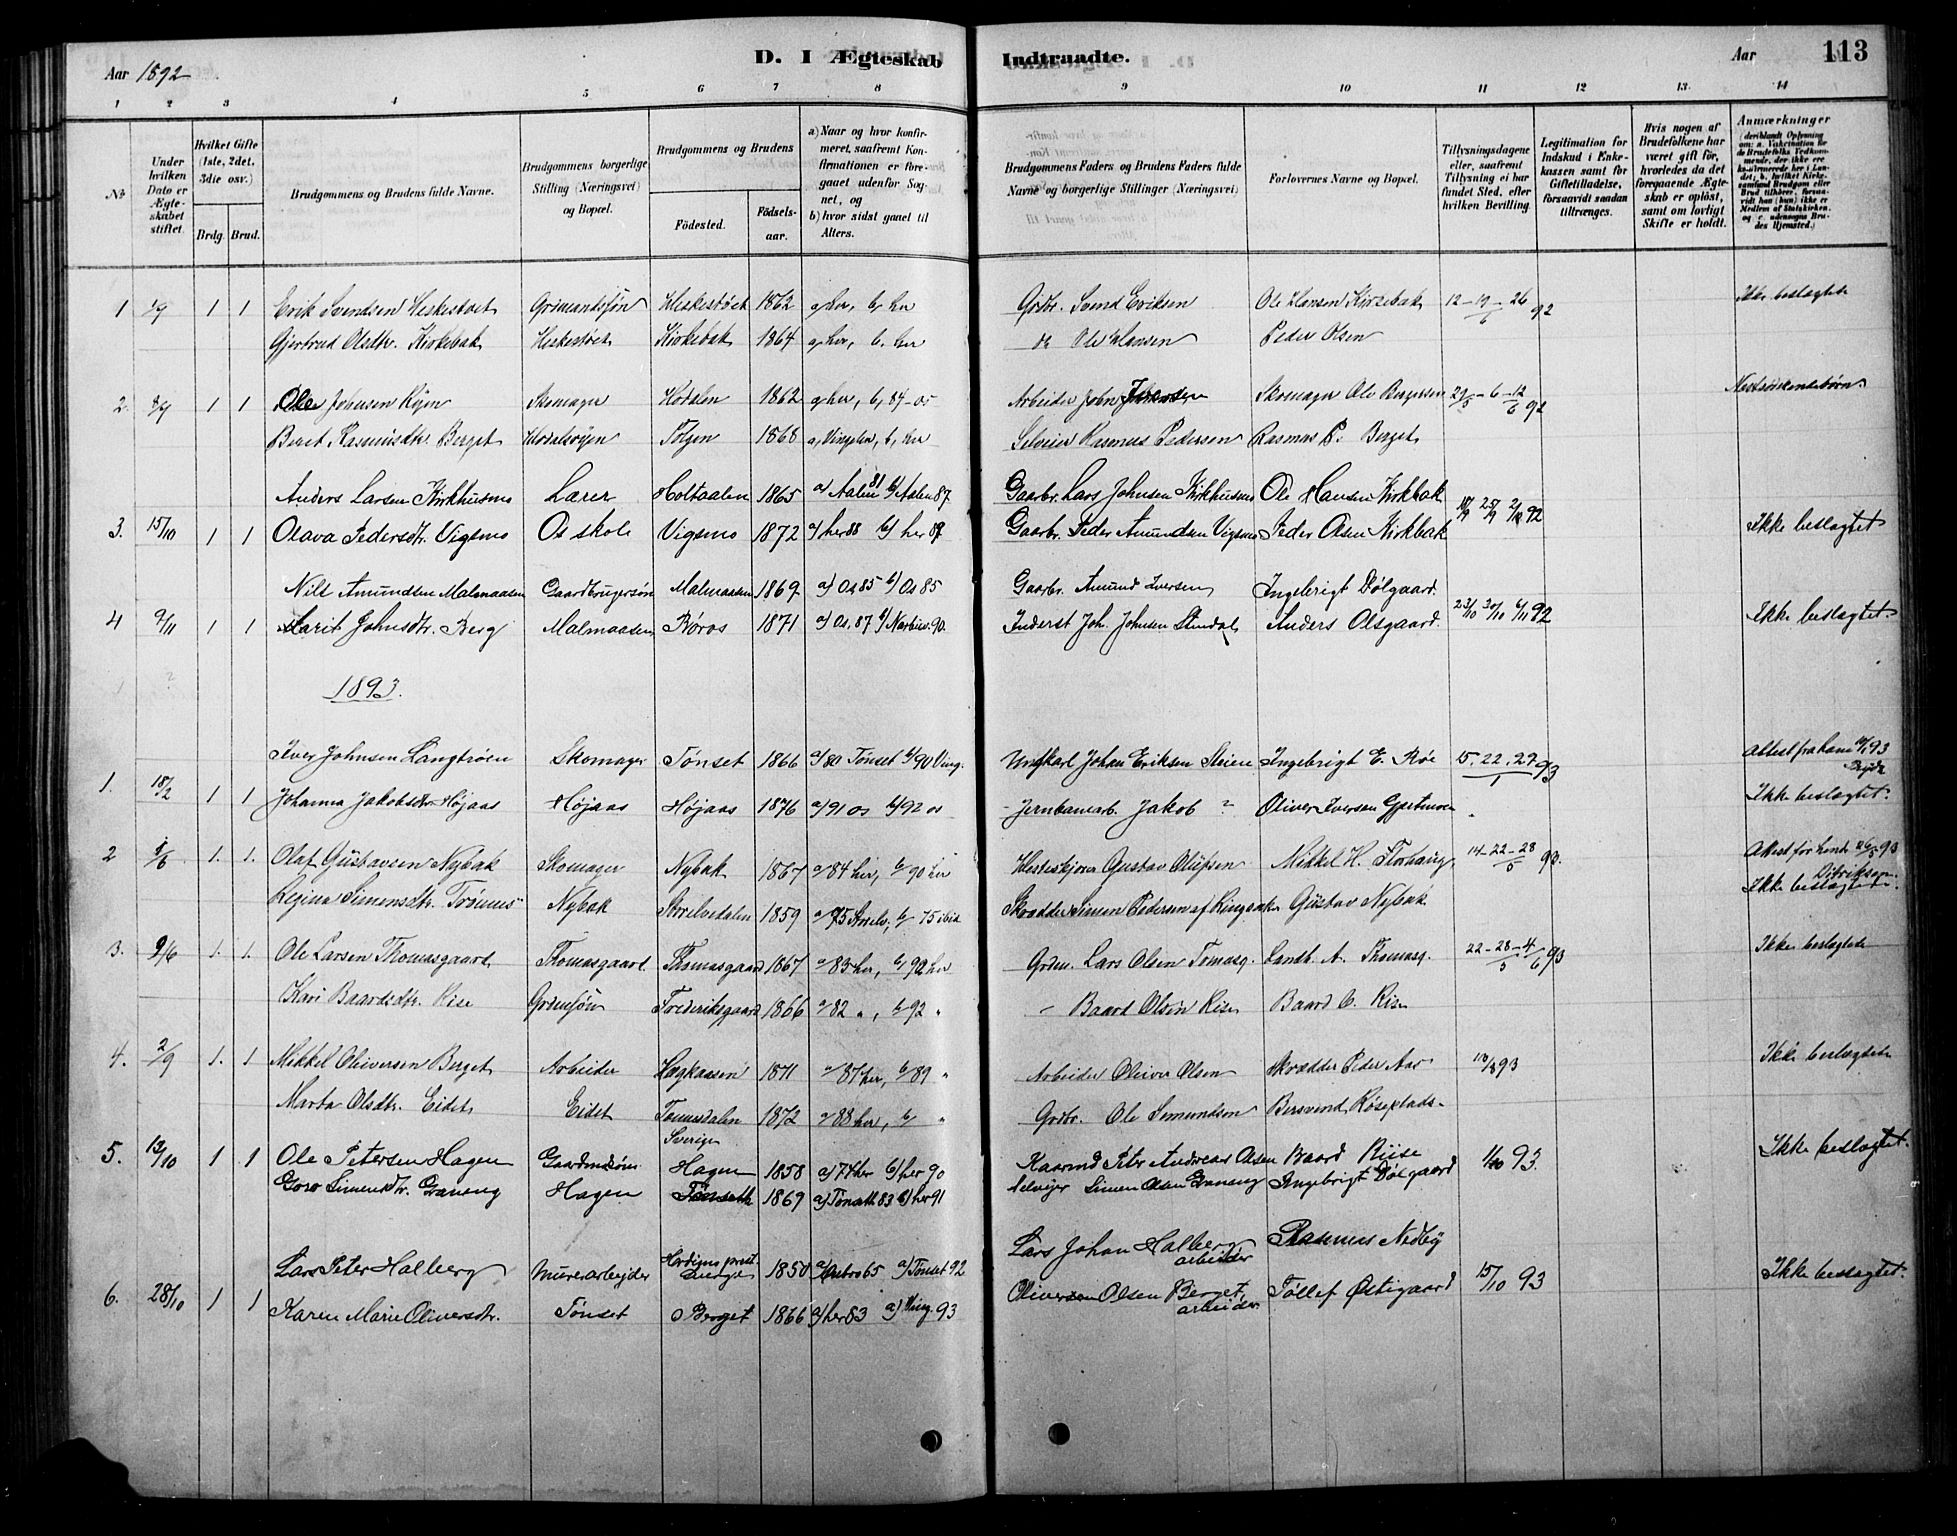 Aar 1892 D. I Ægteskab Indtraadte. Aar 113
1 2 3 4 5 6 7 8 9 10 11 12 13 14
No
Under hvilken Dato er Ægteskabet stiftet.
Hvilket Gifte (1ste, 2det, 3die osv.)
Brdg. Brud.
Brudgommens og Brudens fulde Navne.
Brudgommens borgerlige Stilling (Næringsvei) og Bopæl.
Brudgommens og Brudens
Fødested. Fødselsaar.
a) Naar og hvor konfirmeret, saafremt Konfirmationen er foregaaet udenfor Sognet, og
b) hvor sidst gaaet til Alters.
Brudgommens Faders og Brudens Faders fulde Navne og borgerlige Stillinger (Næringsvei)
Forlovernes Navne og Bopæl.
Tillysningsdagene eller, saafremt Tillysning ei har fundet Sted, efter hvilken Bevilling.
Legitimation for Indskud i Enkekassen samt for Giftetilladelse, forsaavidt saadan tiltrænges.
Hvis nogen af Brudefolkene har været gift før, hvorledes da det foregaaende Ægteskab er opløst, samt om lovligt Skifte er holdt.
Anmærkninger
1 1 1 Erik Svendsen Heskestøet Grdmandssøn Heskestøet 1862 a, her, b, her Grdbr. Svend Eriksen Ole Hansen Kirkebak 12-19-26/6 92 Ikke beslægtede
Gjertrud Olsdtr. Kirkebak Heskestøet Kirkebak 1864 a, her, b, her Ole Hansen Peder Olsen
2. 1 1 Ole Johnsen Røen Skomager Hodalen 1862 a, her, b, 84-os Arbeider John Skomager Ole Bergersen 29/5-6-12/6 92 Næstsødskendebørn.
Beret Rasmusdtr. Berget Hodalsvoen Tolgen 1868 a, Vingelen, b, her Selveier Rasmus Pedersen Rasmus P. Berget
Anders Larsen Kirkhusmo Lærer Holtaalen 1865 a) Aalen 81 b) Aalen 87 Gaarbr. Lars Johnsen Kirkhusmo Ole Hansen Kirkbak
3. 15/10 1 1 Olava Pedersdtr. Vigsmo Os skole Vigsmo 1872 a) her 88 b) her 89 Gaarbr. Peder Amundsen Vigsmo Peder Olsen Kirkbak 18/9 25/9 2/10 92 Ikke beslagtet
Nils Amundsen Malmaasen Gaardbrugersøn Malmaasen 1869 a) Os 85 b) Os 85 Gaarbr. Amund Iversen Ingebrigt Dølgaard.
4 9/11 1 1 Marit Johnsdtr. Berg Malmaasen Røros 1871 a) Os. 87 b) Narbuv. 90. Inderst Joh. Johnsen Anders Olsgaard. 23/10 30/10 6/11 92 Ikke beslagtet.
1893.
Iver Johnsen Langtrøen Skomager Tønset 1866 a/80 Tønset b/90 Ving. Ungkarl Johan Eriksen Steien Ingebrigt E. Røe 15.22.29/1 93 Attest fra ham 93
1. 18/2 1 1 Johanna Jakobsdtr. Højaas Højaas Højaas 1876 a/91 os b/92 os Jernbanearb. Jakob ? Oliver Iversen Gjertmoen Ikke beslægtet.
2 1/6 1. 1. Olaf Gustavsen Nybak Skomager Nybak 1867 a/84 her, b/90 her Gustav Olufsen Mikkel H. Storhaug 14-22-28/5 93. Attest for hende 93
Regina Simensdtr. Trønnes Nybak Storelvedalen 1859 a/75 Storelv., b/75 ibid Skrædder Simen Pedersen af Ringsaker Gustav Nybak Ikke beslægtede.
3. 9/6 1. 1. Ole Larsen Thomasgaard Thomasgaard. Thomasgaard 1867 a/83 her, b, 92 her Grdm. Lars Olsen Tomasg. Landh. A. Thomasg. 22-28-4/6 93 Ikke beslegtede
Kari Baardsdtr. Rise Grdmsøn Frederiksgaard 1866 a/82 ", b/92 " Baard Olsen Rise Baard O. Rise
4. 2/9 1. 1 Mikkel Oliversen Berget Arbeider 1871 a/87 her, b/89 " Arbeider Oliver Olsen Skrædder Peder Aas 93 Ikke beslægtede
Marta Olsdtr. Eidet Eidet Tamnesdalen Sverige 1872 a/88 her, b/ " Grdbr. Ole Simundsen Bersvend Røseplads.
5. 13/10 1 1 Ole Petersen Hagen Gaardmdsøn. Hagen 1858 a) 74 her b) her 90 Kaarmd Peter Andreas Olsen Baard Riise 1/10 93. Ikke beslagtet.
Goro Simensdtr. Graneng Hagen Tønseth 1869 a) Tønseth 83 b) her 91 Selvejer Simen Olsen Graneng Ingebrigt Dølgaard
Lars Peter Halberg Murerarbejder 1850 65 a) Tønset 92 Lars Johan Halberg arbeider Rasmus Nedby
6. 28/10 1 1 Karen Marie Oliversdtr. Tønset Berget 1866 a) her 83 a) Ving. 93 Oliver Olsen Berget, arbeider Tollef Østigaard 15/10 93 Ikke beslagtet.